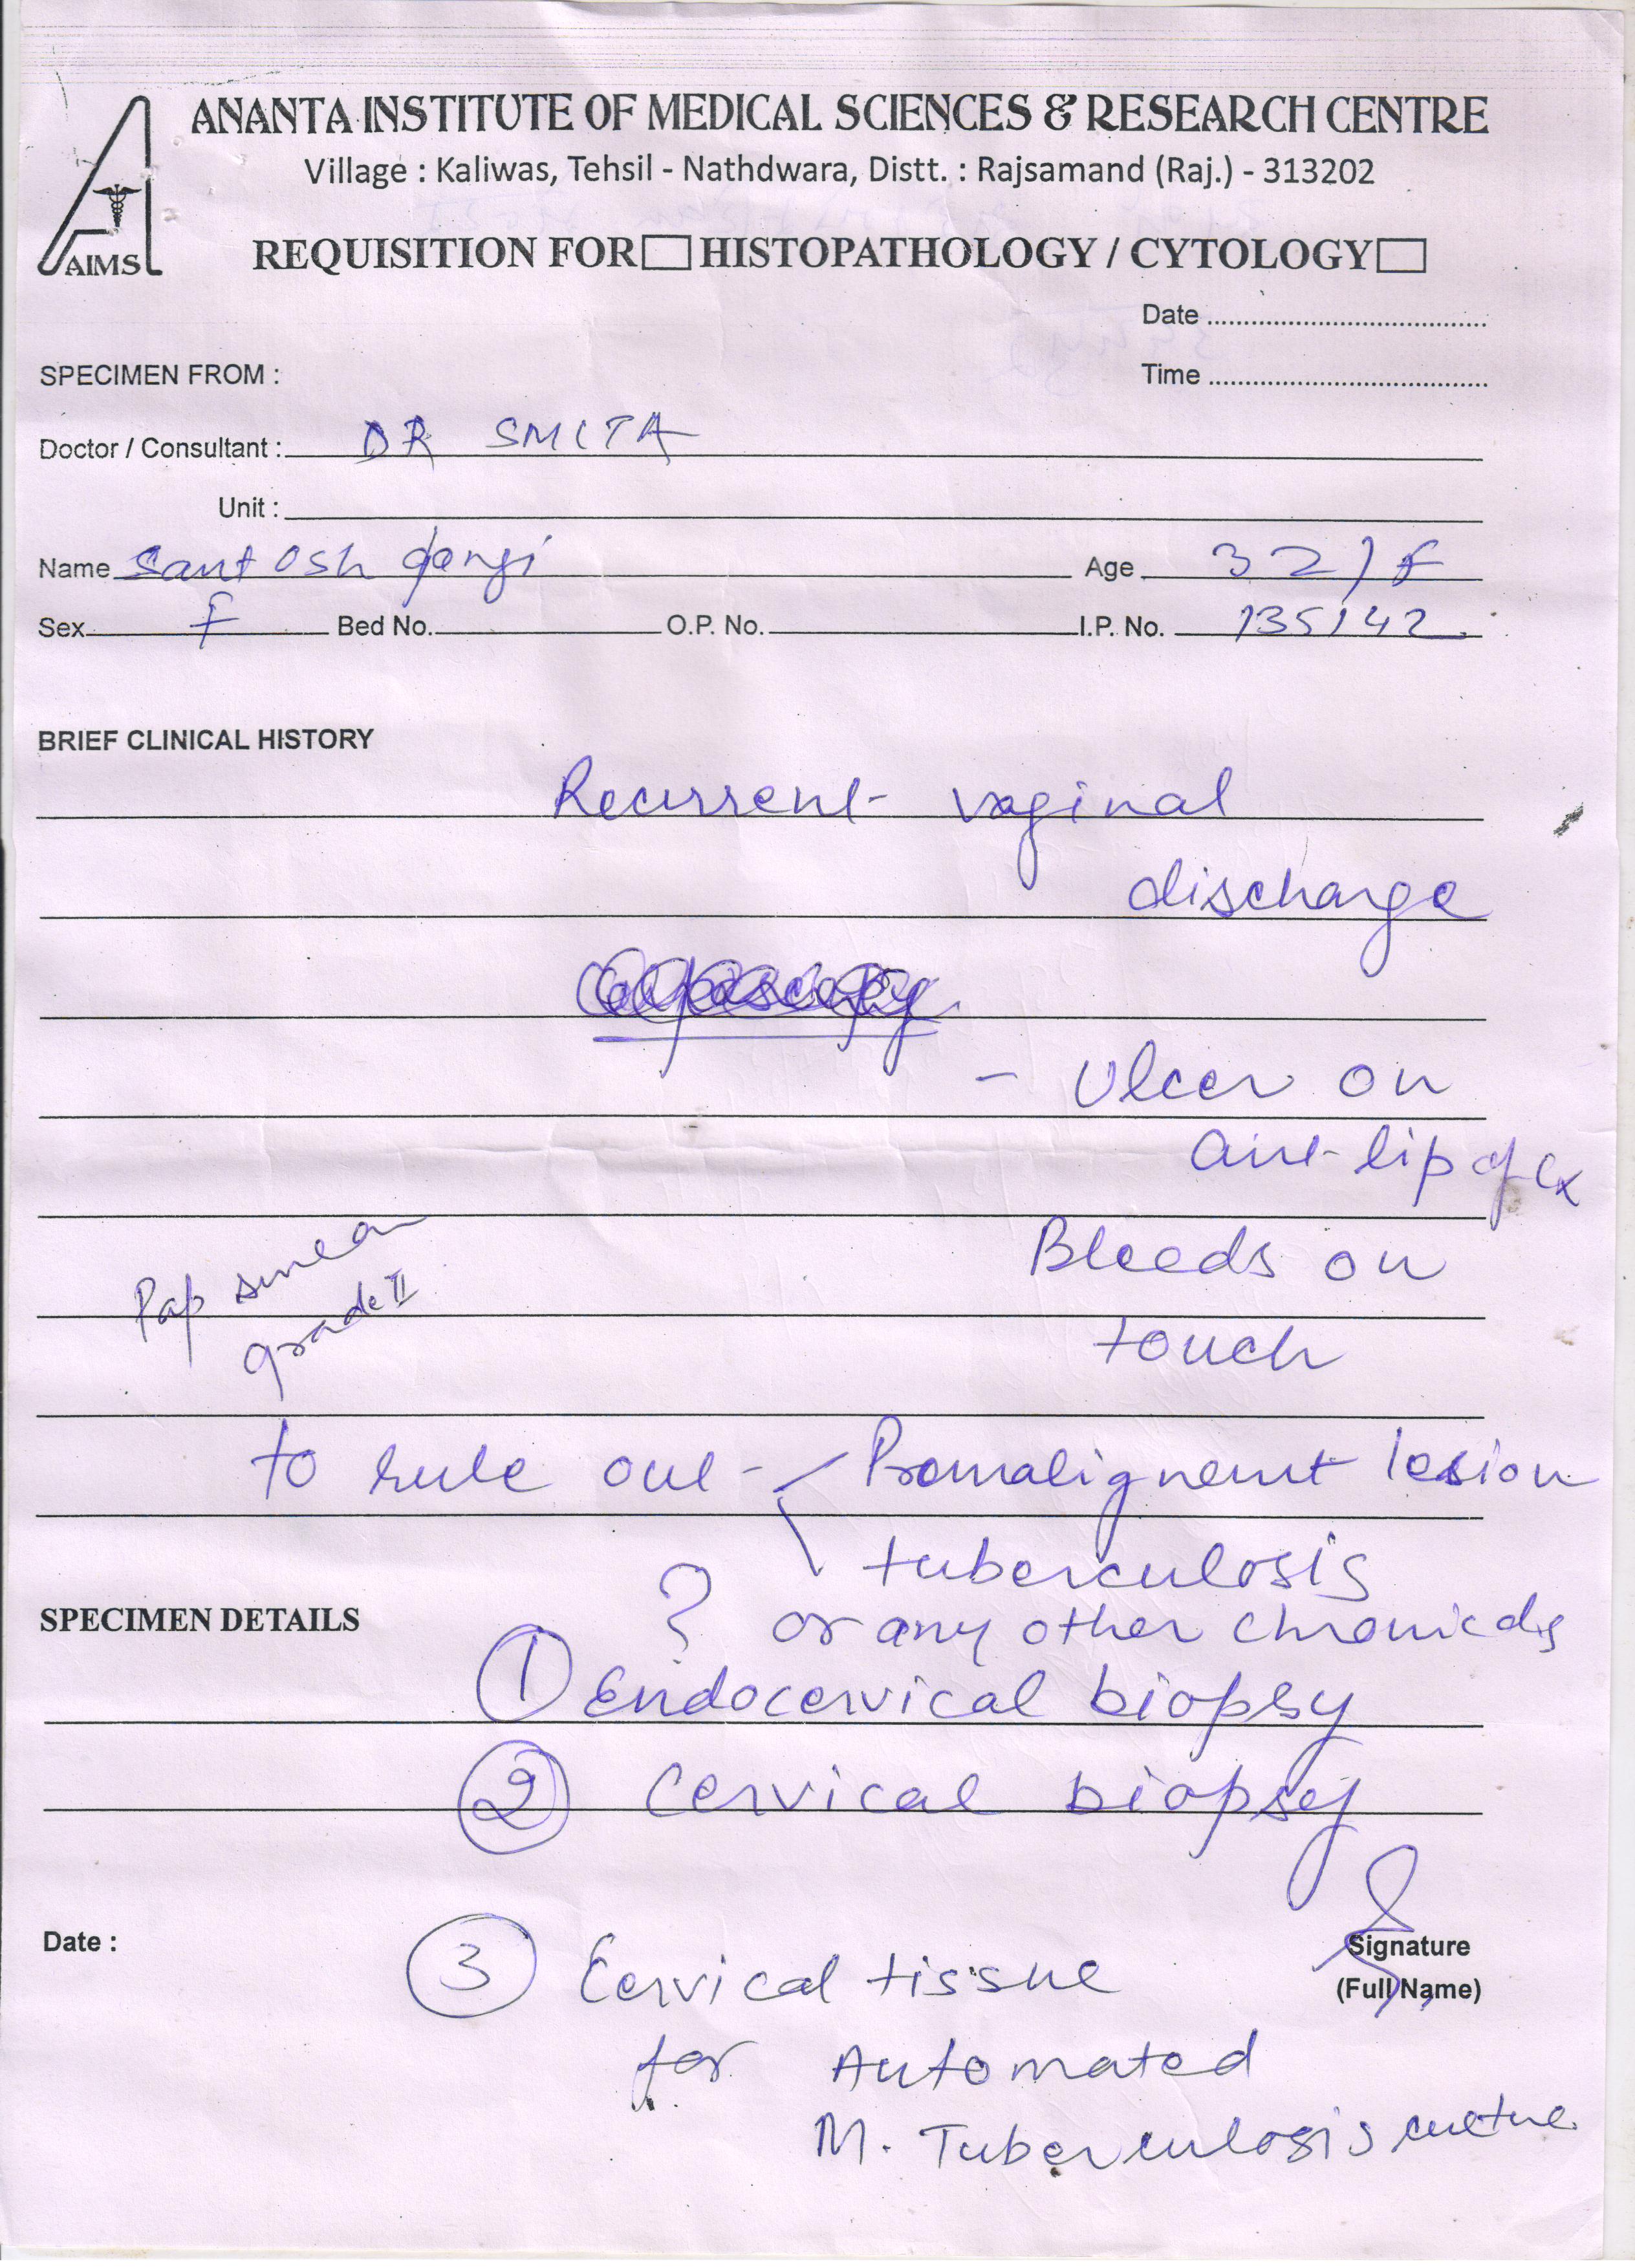 ANANTA INSTITUTE OF MEDICAL SCIENCES & RESEARCH CENTRE
Village : Kaliwas, Tehsil - Nathdwara, Distt. : Rajsamand (Raj.) - 313202
AIMS
REQUISITION FOR HISTOPATHOLOGY / CYTOLOGY
Date
SPECIMEN FROM :
Time
Doctor / Consultant : DR SMITA
Unit :
Name Santosh
Age 32/F
Sex F Bed No. O.P. No. I.P. No. 135142
BRIEF CLINICAL HISTORY
Recurrent vaginal
discharge
- Ulcer on
ant lip of Cx
Bleeds on
touch
Pap smear
grade II
to rule out - Premalignant lesion
tuberculosis
? or any other chronic
SPECIMEN DETAILS
① Endocervical biopsy
② Cervical biopsy
Date :
③ Cervical tissue
for Automated
M. Tuberculosis culture
Signature
(Full Name)